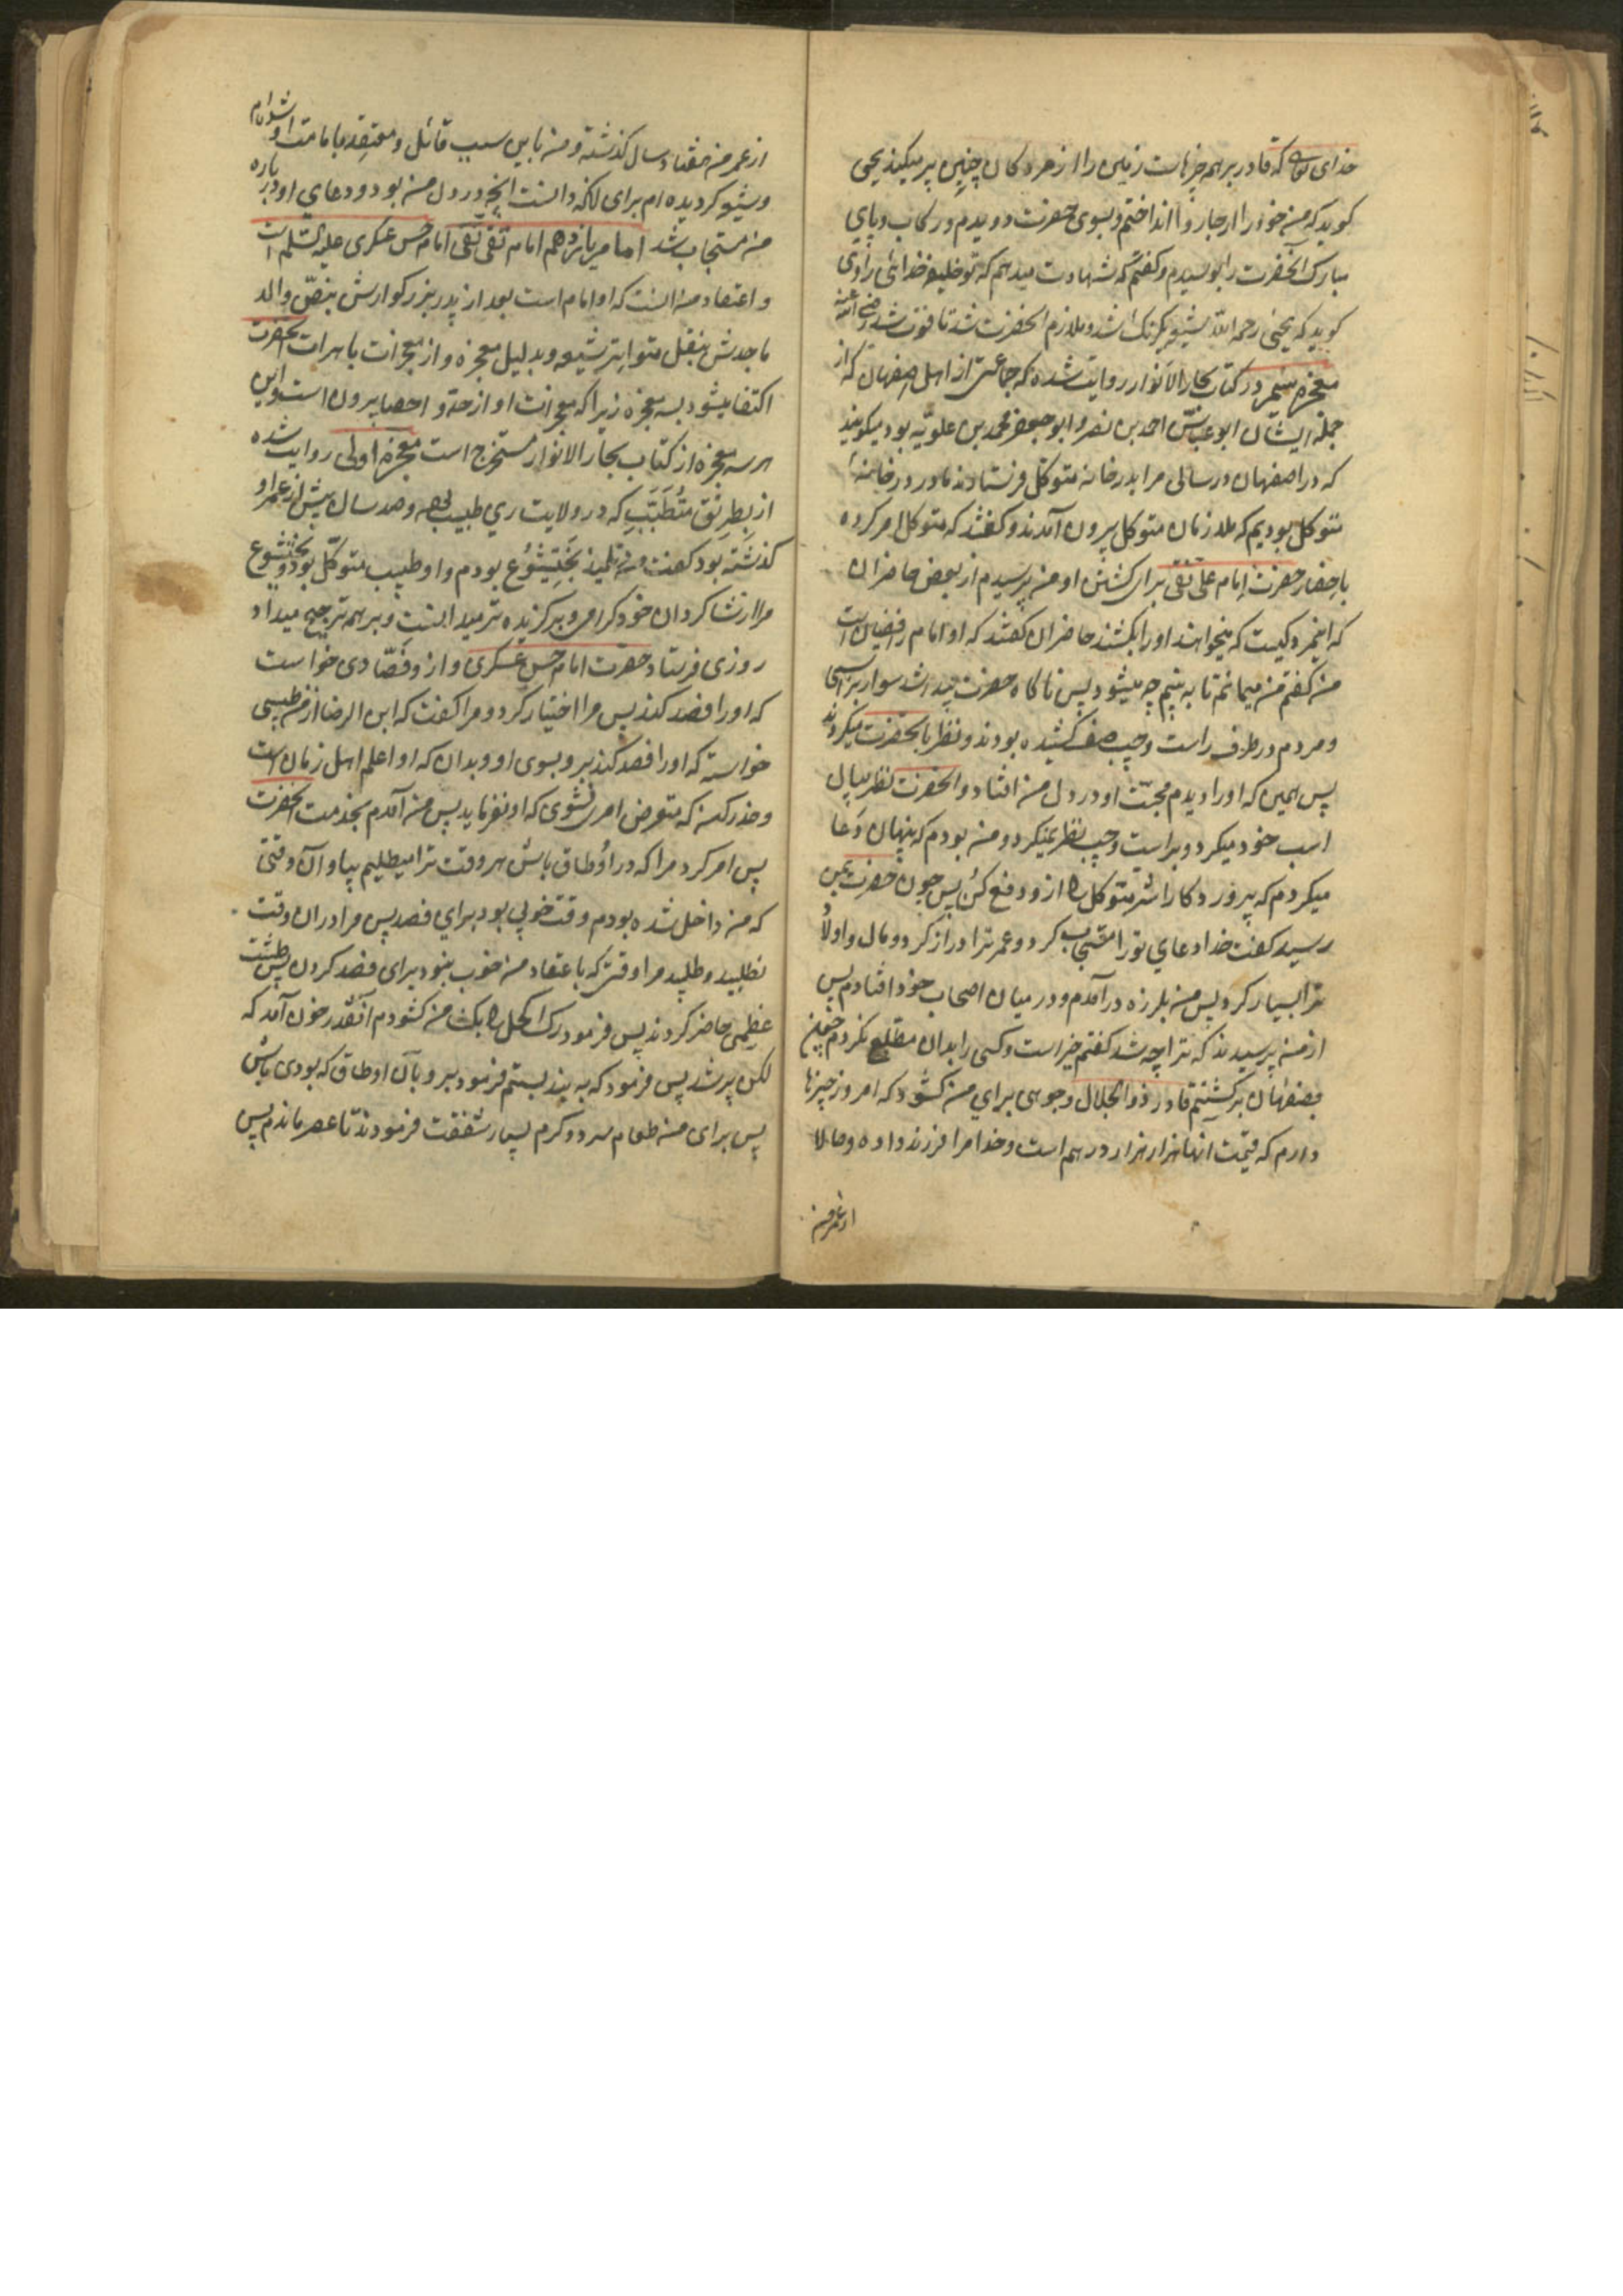 خدای تعالی که قادر بر همه چیزهاست زمین را از مردکان چنین پر میکند یحیی
کوید که من خود را از چاروا انداختم و بسوی حضرت دویدم و رکاب و پای
مبارک آنحضرت را بوسیدم و کفتم که شهادت میدهم که تو خلیفه خدائی راوی
کوید که یحیی رحمه الله شیعه یکرنک شد و ملازم آنحضرت شد تا فوت شد رضی الله عنه
معجزه سیم در کتاب بحار الانوار روایت شده که جماعتی از اهل اصفهان که از
جمله ایشان ابو عباس احمد بن نصر و ابو جعفر محمد بن علویه بود میکویند
که در اصفهان در سالی مرا بدر خانه متوکل فرستادند ما در در خانه
متوکل بودیم که ملازمان متوکل بیرون آمدند و کفتند که متوکل امر کرده
باحضار حضرت امام علی نقی برای کشتن او من پرسیدم از بعض حاضران
که اینمرد کیست که میخواهند او را بکشند حاضران کفتند که او امام رافضیان است
من کفتم من میمانم تا به بینم چه میشود پس ناکاه حضرت پیدا شد سوار بر اسبی
و مردم در طرف راست و چپ صف کشیده بودند و نظر بآنحضرت میکردند
پس همین که او را دیدم محبت او در دل من افتاد و آنحضرت نظر بیال
اسب خود میکرد و براست و چپ نظر نمیکرد و من بودم که پنهان دعا
میکردم که پروردکارا شر متوکل را ازو دفع کن پس چون حضرت بمن
رسید کفت خدا دعای تو را مستجاب کرد و عمر ترا دراز کرد و مال و اولاد
ترا بسیار کرد پس من بلرزه در آمدم و در میان اصحاب خود افتادم پس
از من پرسیدند که ترا چه شد کفتم خیر است و کسی را بدان مطلع نکردم چون
بصفهان برکشتم قادر ذو الجلال وجوهی برای من کشود که امروز چیزها
دارم که قیمت آنها هزار هزار درهم است و خدا مرا فرزند داده و حالا
از عمر من
از عمر من هفتاد سال کذشته و من باین سبب قائل و معتقد بامامت او شده ام
و شیعه کردیده ام برای آنکه دانست آنچه در دل من بود و دعای او در باره
من مستجاب شد امام یازدهم امام تقی نقی امام حسن عسکری علیه السلام است
و اعتقاد من آنست که او امام است بعد از پدر بزرکوارش بنص والد
ماجدش بنقل متواتر شیعه و بدلیل معجزه و از معجزات باهرات آنحضرت
اکتفا میشود بسه معجزه زیرا که معجزات او از حد و احصا بیرون است و این
هر سه معجزه از کتاب بحار الانوار مستخرج است معجزه اولی روایت شده
از بطریق متطبب که در ولایت ری طبیب بود و صد سال بیش از عمر او
کذشته بود کفت من تلمیذ بختیشوع بودم و او طبیب متوکل بود و بختیشوع
مرا از شاکردان خود کرامی و برکزیده تر میدانست و بر همه ترجیح میداد
روزی فرستاد حضرت امام حسن عسکری و ازو فصادی خواست
که او را فصد کند پس مرا اختیار کرد و مرا کفت که ابن الرضا از من طبیبی
خواسته که او را فصد کند برو بسوی او و بدان که او اعلم اهل زمان است
و حذر کن که متعرض امری نشوی که او نفرماید پس من آمدم بخدمت آنحضرت
پس امر کرد مرا که در اوطاق باش هر وقت ترا میطلبیم بیا و آن وقتی
که من داخل شده بودم وقت خوبی بود برای فصد پس مرا در آن وقت
نطلبید و طلبید مرا وقتی که باعتقاد من خوب نبود برای فصد کردن پس طشت
عظیمی حاضر کردند پس فرمود رک اکحل را بکشا من کشودم آنقدر خون آمد که
لکن پر شد پس فرمود که به بند بستم فرمود برو بآن اوطاق که بودی باش
پس برای من طعام سرد و کرم بسیار شفقت فرمودند تا عصر ماندم پس